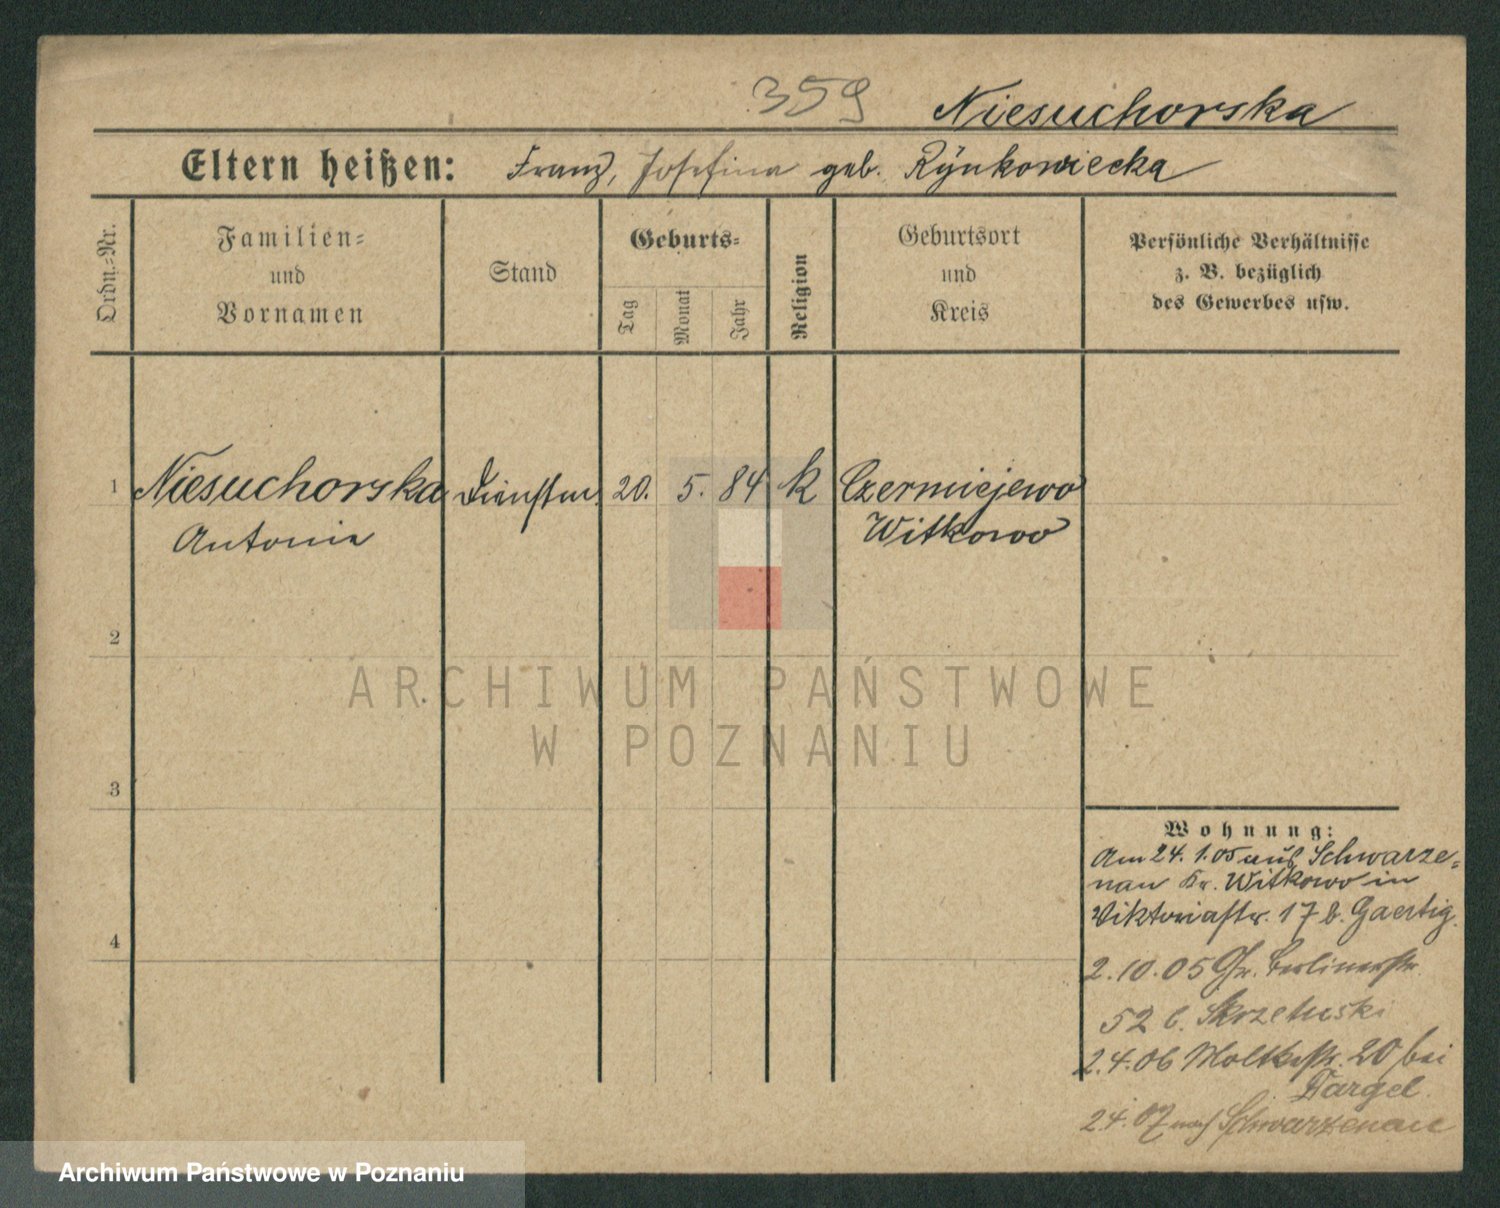 359 Niesuchorska
Eltern heißen: Franz, Josefina geb. Rynkowiecka
Ordn.-Nr.
Familien-
und
Vornamen
Stand
Geburts-
Tag
Monat
Jahr
Religion
Geburtsort
und
Kreis
Persönliche Verhältnisse
z. B. bezüglich
des Gewerbes usw.
1 Niesuchorska 20. 5. 84 k Czerniejewo
Antonie Witkowo
2
3
4
ARCHIWUM PAŃSTWOWE
W POZNANIU
Wohnung:
Am 24. 1. 05 aus Schwarze-
nau Kr. Witkowo in
Viktoriastr. 17 b. Gaertig.
2. 10. 05 Gr. Berlinerstr.
52 b. Skrzetuski
2. 4. 06 Moltkestr. 20 bei
Targel.
2 4. 07 nach Schwarzenau
Archiwum Państwowe w Poznaniu